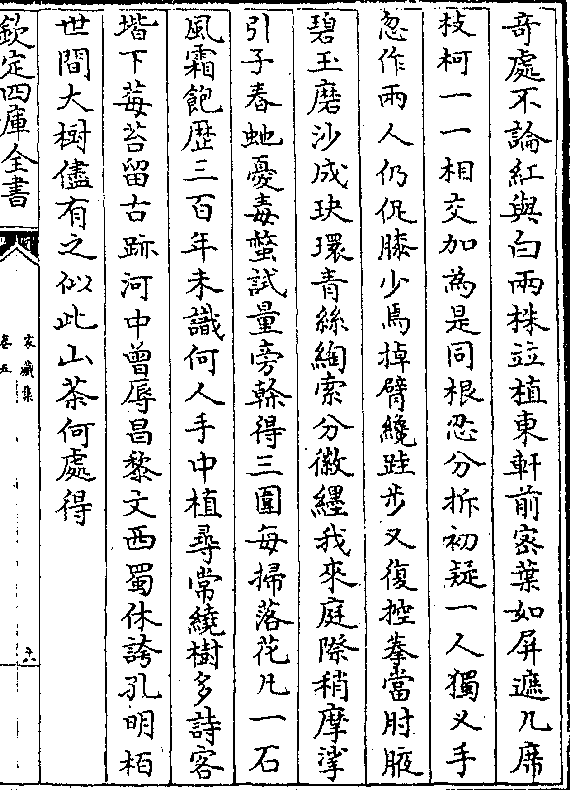 奇處不論紅與白兩株並植東軒前密葉如屏遮几席
枝柯一一相交加為是同根忍分拆初疑一人獨乂手
忽作兩人仍促膝少焉掉臂纔跬步又復控拳當肘腋
碧玉磨沙成玦環青絲綯索分徽纆我來庭際稍摩挲
引子春虵憂毒螫試量旁榦得三圍每掃落花凡一石
風霜飽歴三百年未識何人手中植尋常繞樹多詩客
堦下莓苔留古跡河中曾辱昌黎文西蜀休誇孔明栢
世間大樹儘有之似此山茶何處得
欽定四庫全書
家藏集
卷五
六